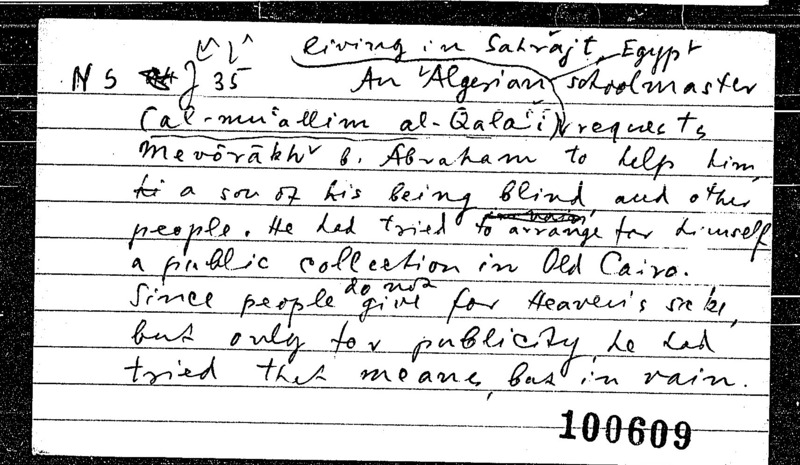 living in Sahrajt, Egypt
NS J 35 An Algerian schoolmaster
(al-muʿallim al-Qalaʿī) requests
Mevōrākh b. Abraham to help him,
a son of his being blind, and other
people. He had tried to arrange for himself
a public collection in Old Cairo.
Since people do not give for Heaven's sake,
but only for publicity, he had
tried that means, but in vain.
100609